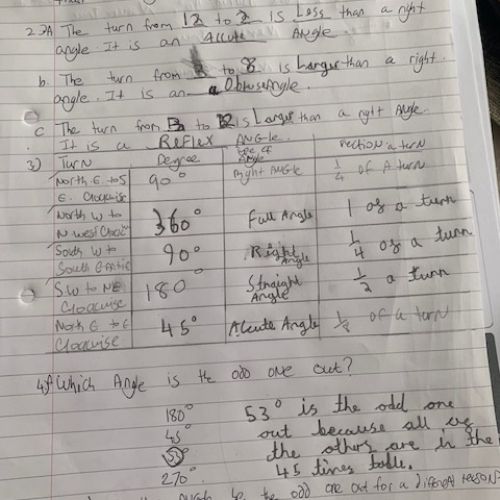 2.2A The turn from 12 to 2 is Less than a right
angle. It is an Accute Angle.
b. The turn from to 8 is Larger than a right.
angle. It is an Obtuse Angle.
c The turn from to is Larger than a right Angle.
It is a REFLEX ANGLE.
3) Turn Degree Angle turn
North E to S 90° Right ANGLE 1/4 of A turn.
E. Clockwise
North W to 360° Full Angle 1 of a turn
N West
South W to 90° Right Angle 1/4 of a turn
South E
S.W to NE 180° Straight Angle 1/2 a turn
Clockwise
North E to E 45° Accute Angle 1/8 of a turn
Clockwise
4)A Which Angle is the odd one out?
180° 53° is the odd one
45° out because all
53° the others are in the
270° 45 times table.
the odd one out for a different reason?